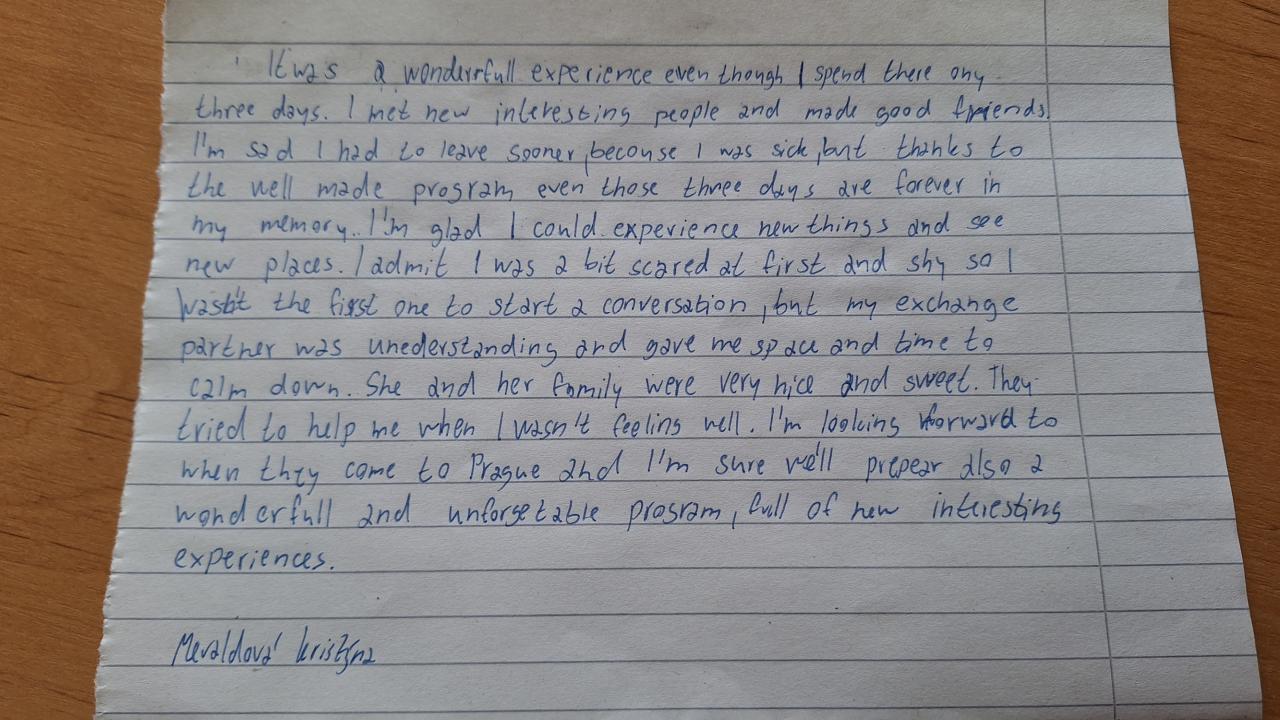 It was a wonderrfull experience even though I spend there ony
three days. I met new interesting people and made good friends.
I'm sad I had to leave sooner, becouse I was sick, but thanks to
the well made program even those three days are forever in
my memory. I'm glad I could experience new things and see
new places. I admit I was a bit scared at first and shy so I
wasn't the first one to start a conversation, but my exchange
partner was unederstanding and gave me space and time to
calm down. She and her family were very nice and sweet. They
tried to help me when I wasn't feeling well. I'm looking forward to
when they come to Prague and I'm sure we'll prepear also a
wonderfull and unforgetable program, full of new interesting
experiences.
Mevaldová Kristýna